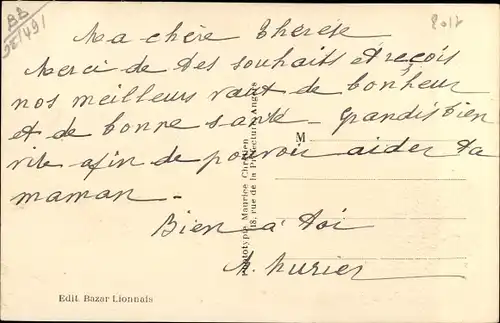 BB
Ma chère Thérèse
Merci de tes souhaits et reçois
nos meilleurs vœux de bonheur
et de bonne santé - grandis bien
vite afin de pouvoir aider ta
maman -
Bien à toi
M
Phototypie Maurice Chrétien
18, rue de la Préfecture, Angers
Edit. Bazar Lionnais